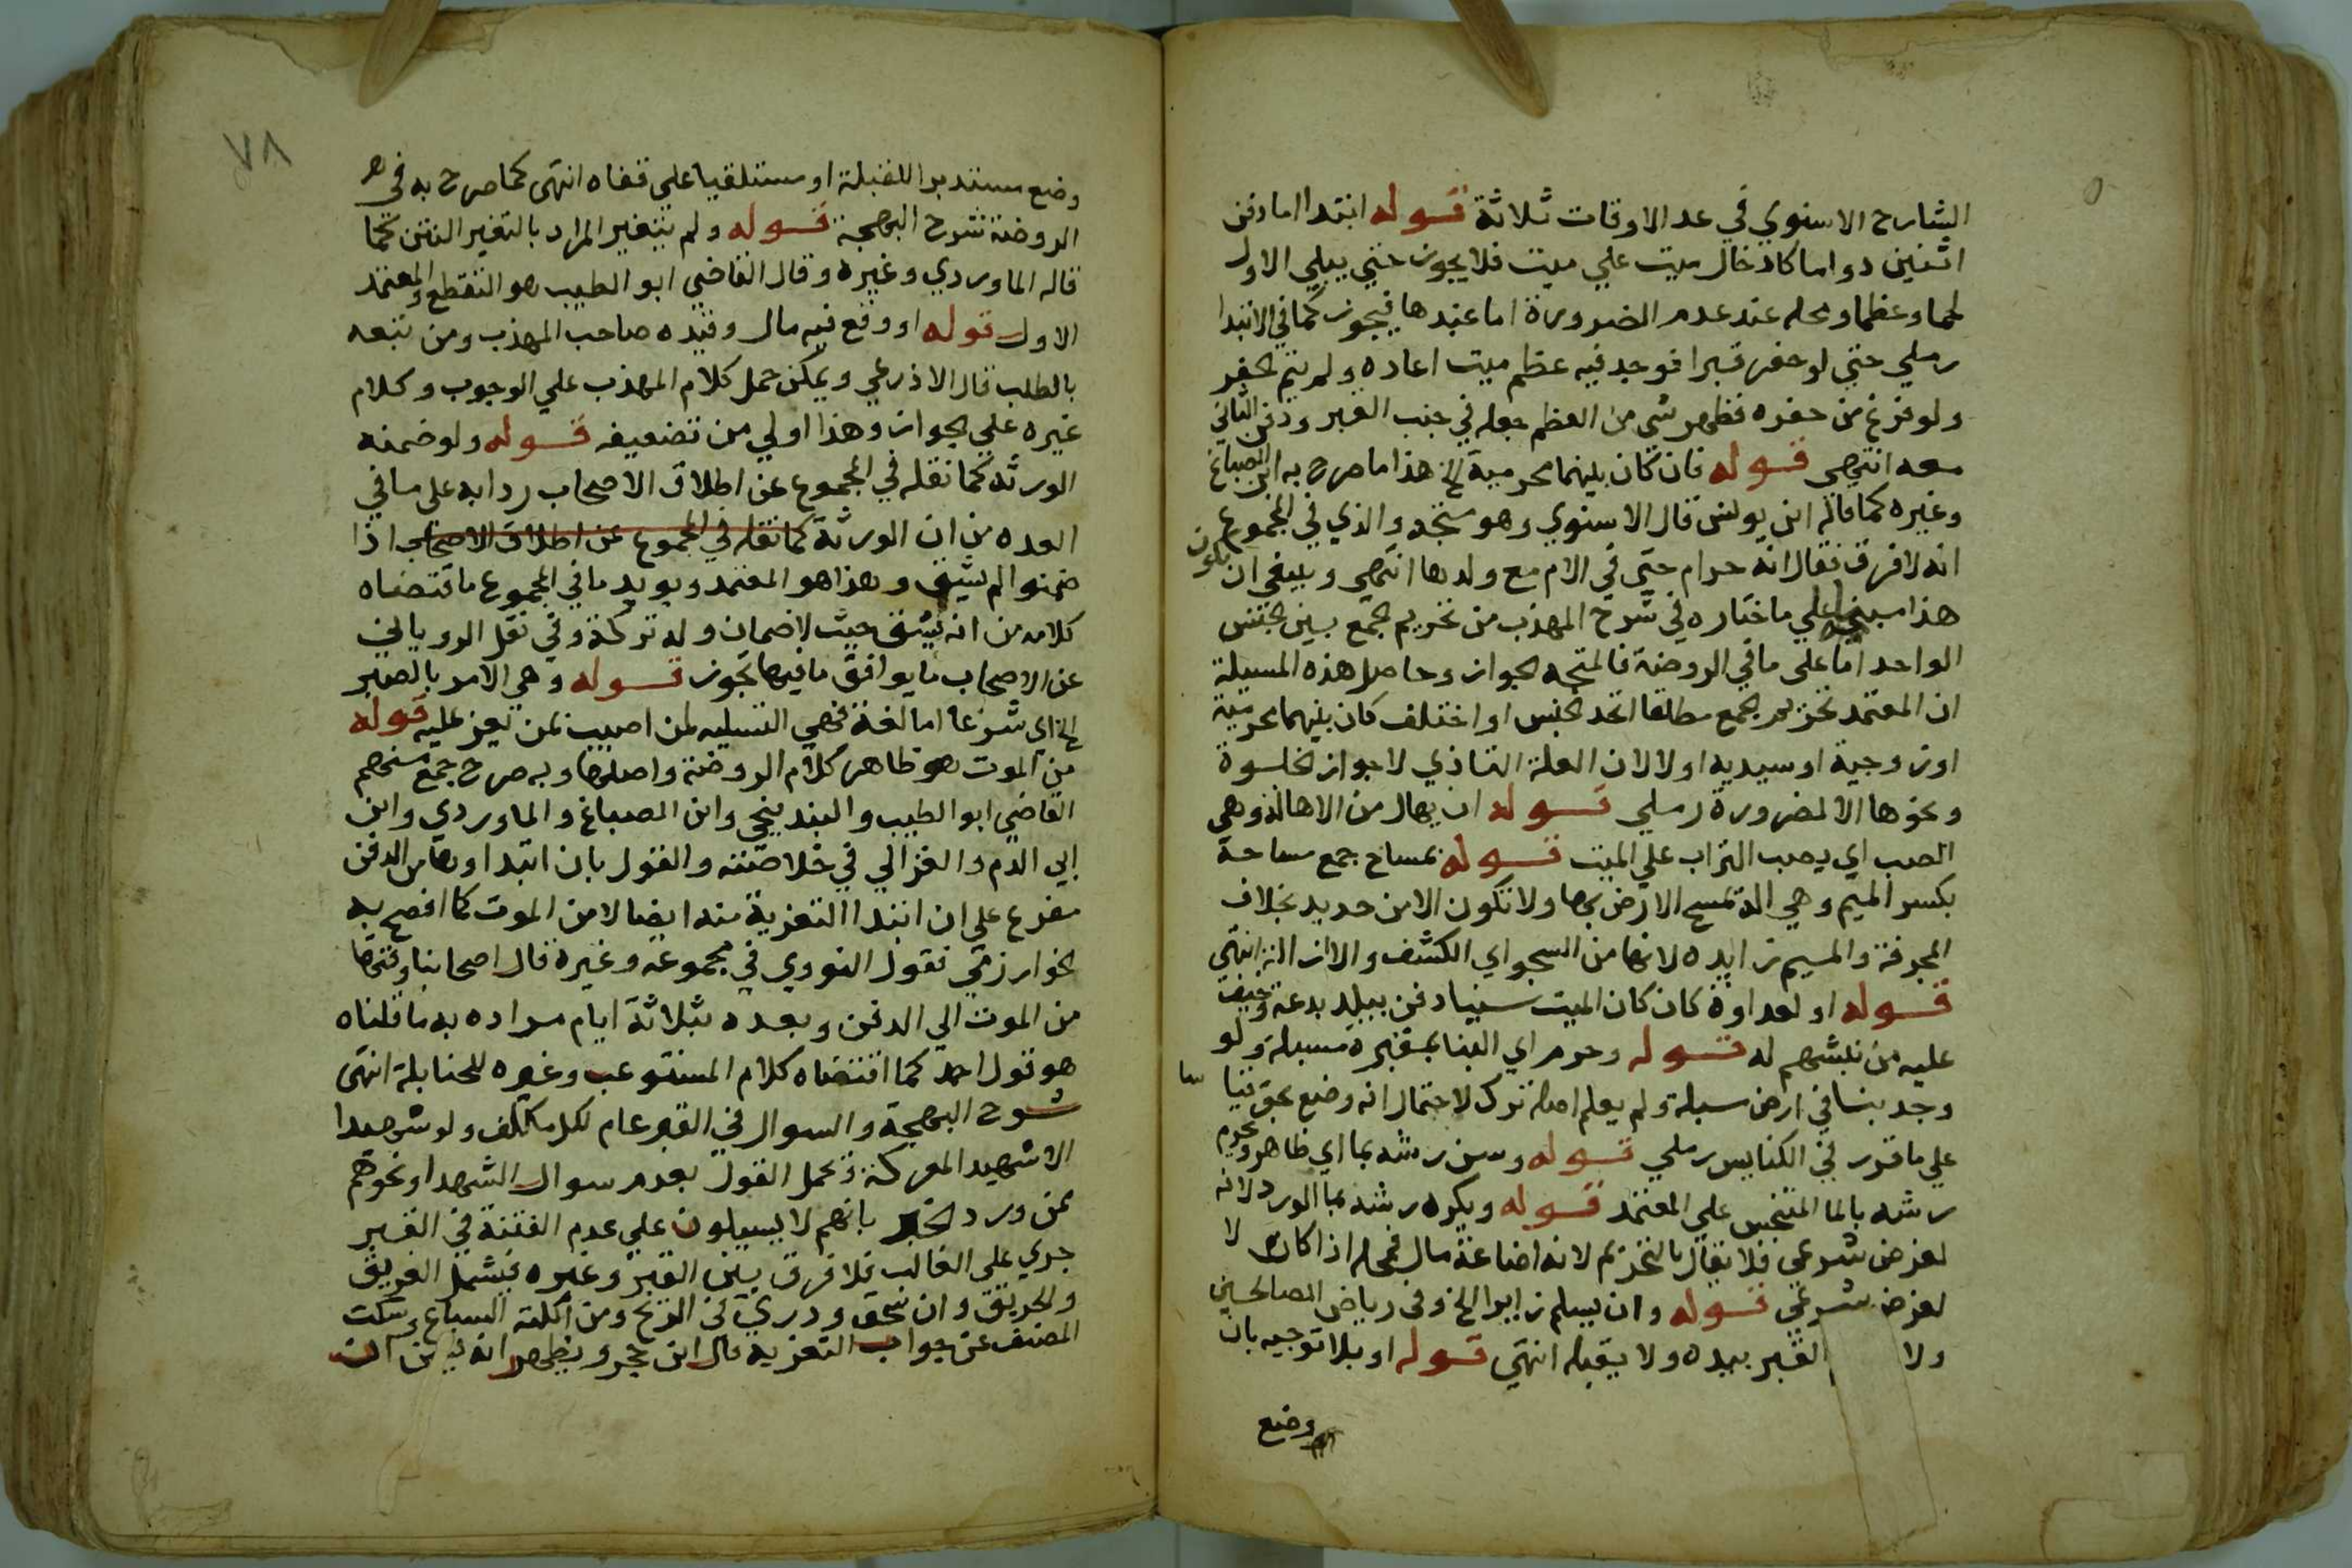 الشارح الاسنوي في عد الاوقات ثلاثة قوله ابتدا اما دفن
اثنين دواما كادخال ميت علي ميت فلا يجوز حتي يبلي الاول
لحما وعظما ومحله عند عدم الضرورة اما عندها فيجوز كما في الابتدا
رملي حتي لو حفر قبرا فوجد فيه عظم ميت اعاده ولم يتم الحفر
ولو فرغ من حفره فظهر شي من العظم جعله في جنب القبر ودفن الثاني
معه انتهي قوله فان كان بينهما محرمية الخ هذا ما صرح به ابن الصباغ
وغيره كما قاله ابن يونس قال الاسنوي وهو متجه والذي في المجموع
انه لا فرق فقال انه حرام حتي في الام مع ولدها انتهي وينبغي ان يكون
هذا مبنيا علي ما اختاره في شرح المهذب من تحريم الجمع بين الجنس
الواحد اما على ما في الروضة فالمتجه الجواز وحاصل هذه المسيلة
ان المعتمد تحريم الجمع مطلقا اتحد الجنس او اختلف كان بينهما محرمية
او زوجية او سيدية اولا لان العلة التاذي لا جواز الخلوة
ونحوها الا لضرورة رملي قوله ان يهال من الاهالة وهي
الصب اي يصب التراب علي الميت قوله بمساح جمع مساحة
بكسر الميم وهي الة تمسح الارض بها ولا تكون الا من حديد بخلاف
المجرفة والميم زايده لانها من السحو اي الكشف والازالة انتهي
قوله او لعداوة كان كان الميت سنيا دفن ببلد بدعة وخيف
عليه من نبشهم له قوله وحرم اي البنا بمقبرة مسبلة ولو
وجد بنا في ارض مسبلة ولم يعلم اصله ترك لاحتمال انه وضع بحق قياسا
علي ما قرر في الكنايس رملي قوله وسن رشه بما اي طاهر ويحرم
رشه بالما المتنجس علي المعتمد قوله ويكره رشه بما الورد لانه
لغرض شرعي فلا يقال بالتحريم لانه اضاعة مال فمحله اذا كان لا
لغرض شرعي قوله وان يسلم زايرا الخ وفي رياض الصالحين
ولا القبر بيده ولا يقبله انتهي قوله او بلا توجيه بان
وضع
٧٨
وضع مستدبرا للقبلة او مستلقيا علي قفاه انتهي كما صرح به في
الروضة شرح البهجة قوله ولم يتغير المراد بالتغير النتن كما
قاله الماوردي وغيره وقال القاضي ابو الطيب هو التقطع والمعتمد
الاول قوله او وقع فيه مال وقيده صاحب المهذب ومن تبعه
بالطلب قال الاذرعي ويمكن حمل كلام المهذب علي الوجوب وكلام
غيره علي الجواز وهذا اولي من تضعيفه قوله ولو ضمنه
الورثه كما نقله في المجموع عن اطلاق الاصحاب ردا به على ما في
العده من ان الورثة كما نقله في المجموع عن اطلاق الاصحاب اذا
ضمنوا لم يشق وهذا هو المعتمد ويويد ما في المجموع ما اقتضاه
كلامه من انه يشق حيث لا ضمان وله تركة وفي نقل الروياني
عن الاصحاب ما يوافق ما فيها تجوز قوله وهي الامر بالصبر
الخ اي شرعا اما لغة فهي التسليه لمن اصيب بمن يعز عليه قوله
من الموت هو ظاهر كلام الروضة واصلها وبه صرح جمع منهم
القاضي ابو الطيب والبندنيجي وابن الصباغ والماوردي وابن
ابي الدم والغزالي في خلاصته والقول بان ابتداوها من الدفن
مفرع على ان ابتدا التعزية منه ايضا لا من الموت كما افصح به
الخوارزمي فقول النووي في مجموعه وغيره قال اصحابنا وقتها
من الموت الي الدفن وبعده بثلاثة ايام مراده به ما قلناه
هو قول احمد كما اقتضاه كلام المستوعب وغيره للحنابلة انتهى
شرح البهجة والسوال في القبر عام لكل مكلف ولو شهيدا
الا شهيد المعركة وتحمل القول بعدم سوال الشهدا ونحوهم
ممن ورد الخبر بانهم لا يسيلون علي عدم الفتنة في القبر
جري على الغالب فلا فرق بين القبر وغيره فيشمل الغريق
والحريق وان سحق وذري في الريح ومن اكلته السباع وسكت
المصنف عن جواب التعزية قال ابن حجر ويظهر انه ان